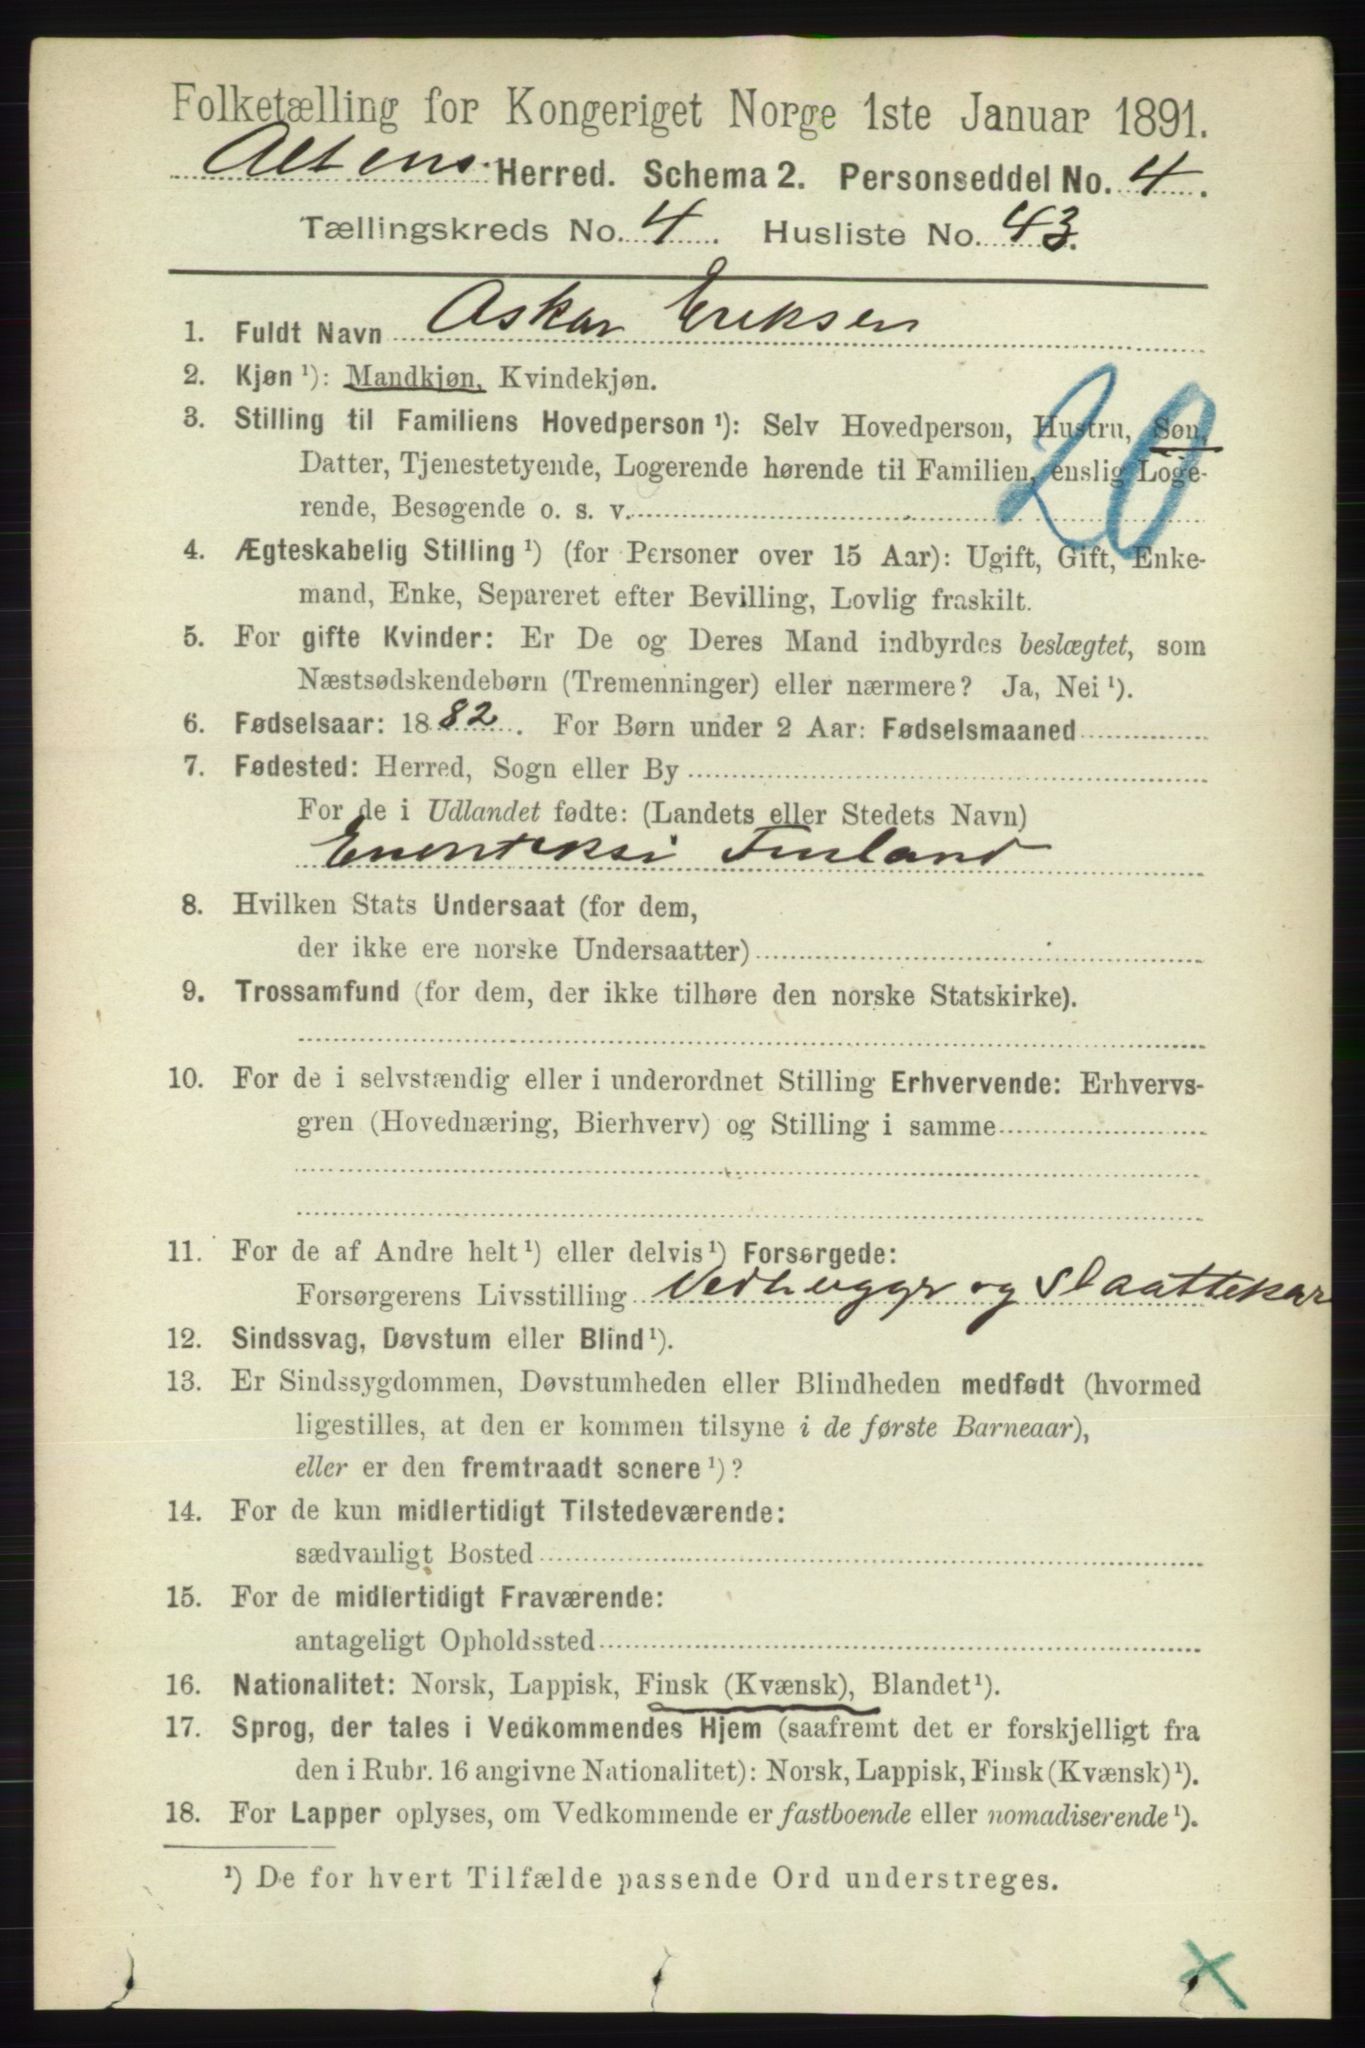 Folketælling for Kongeriget Norge 1ste Januar 1891.
Altens Herred. Schema 2. Personseddel No. 4.
Tællingskreds No. 4. Husliste No. 43.
1. Fuldt Navn Askar Eriksen
2. Kjøn ¹): Mandkjøn, Kvindekjøn.
20
3. Stilling til Familiens Hovedperson ¹): Selv Hovedperson, Hustru, Søn,
Datter, Tjenestetyende, Logerende hørende til Familien, enslig Loge-
rende, Besøgende o. s. v.
4. Ægteskabelig Stilling ¹) (for Personer over 15 Aar): Ugift, Gift, Enke-
mand, Enke, Separeret efter Bevilling, Lovlig fraskilt.
5. For gifte Kvinder: Er De og Deres Mand indbyrdes beslægtet, som
Næstsødskendebørn (Tremenninger) eller nærmere? Ja, Nei ¹).
6. Fødselsaar: 1882. For Børn under 2 Aar: Fødselsmaaned
7. Fødested: Herred, Sogn eller By
For de i Udlandet fødte: (Landets eller Stedets Navn)
Enonteksi Finland
8. Hvilken Stats Undersaat (for dem,
der ikke ere norske Undersaatter)
9. Trossamfund (for dem, der ikke tilhøre den norske Statskirke).
10. For de i selvstændig eller i underordnet Stilling Erhvervende: Erhvervs-
gren (Hovednæring, Bierhverv) og Stilling i samme
11. For de af Andre helt ¹) eller delvis ¹) Forsørgede:
Forsørgerens Livsstilling Vedhugger og Slaattekar
12. Sindssvag, Døvstum eller Blind ¹).
13. Er Sindssygdommen, Døvstumheden eller Blindheden medfødt (hvormed
ligestilles, at den er kommen tilsyne i de første Barneaar),
eller er den fremtraadt senere ¹)?
14. For de kun midlertidigt Tilstedeværende:
sædvanligt Bosted
15. For de midlertidigt Fraværende:
antageligt Opholdssted
16. Nationalitet: Norsk, Lappisk, Finsk (Kvænsk), Blandet ¹).
17. Sprog, der tales i Vedkommendes Hjem (saafremt det er forskjelligt fra
den i Rubr. 16 angivne Nationalitet): Norsk, Lappisk, Finsk (Kvænsk) ¹).
18. For Lapper oplyses, om Vedkommende er fastboende eller nomadiserende ¹).
¹) De for hvert Tilfælde passende Ord understreges.